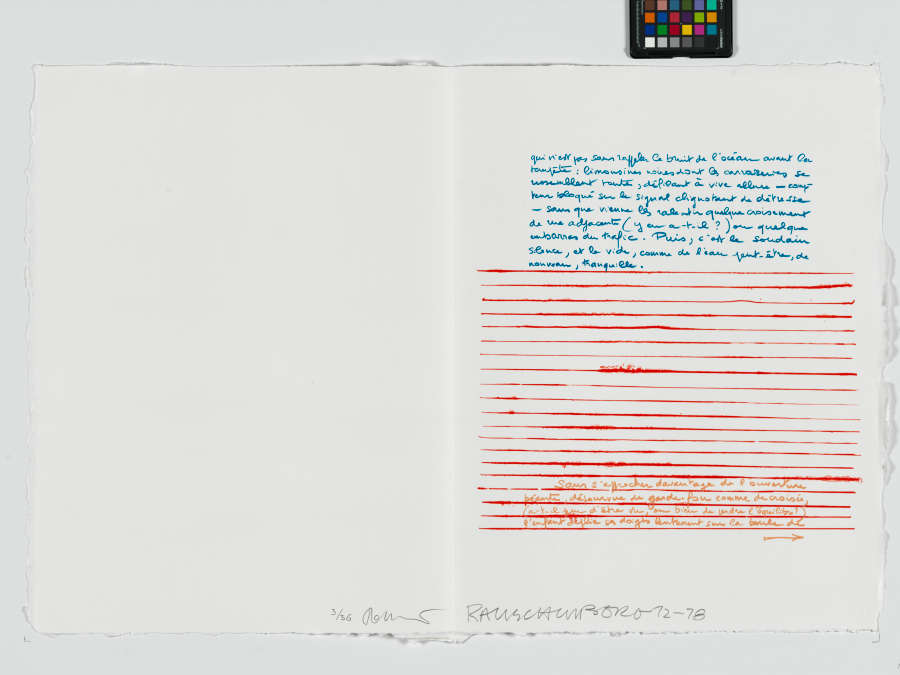 qui n'est pas sans rappeler le bruit de l'océan avant la
tempête : limousines noires dont les carrosseries se
ressemblent toutes, défilant à vive allure —
bloqué sur le signal clignotant de détresse
— sans que vienne les ralentir quelque croisement
de rue adjacente (y en a-t-il ?) ou quelque
embarras du trafic. Puis, c'est le soudain
silence, et le vide, comme de l'eau peut-être, de
nouveau, tranquille.
Sans s'approcher davantage de l'ouverture
béante, dépourvue de garde-fou comme de croisée,
(a-t-il peur d'être vu, ou bien de perdre l'équilibre ?)
l'enfant déplie ses doigts lentement sur la boule de
3/36
RAUSCHENBERG 72-78